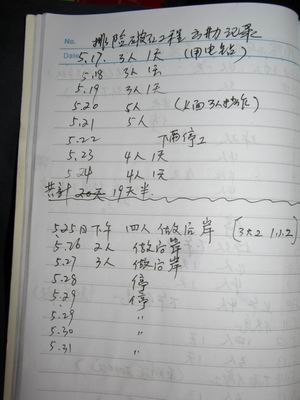 No. 排险破石工程 出勤记录
Date 5.17. 3人1天 (用电钻)
5.18 3人1天
5.19 3人1天
5.20 5人 (上面3人
5.21 5人
5.22 下雨停工
5.23 4人1天
5.24 4人1天
共计 20天 19天半
5.25日下午 四人做后岸
5.26 2人 做后岸
5.27 3人 做后岸
5.28 停
5.29 停
5.29 〃
5.30 〃
5.31 〃